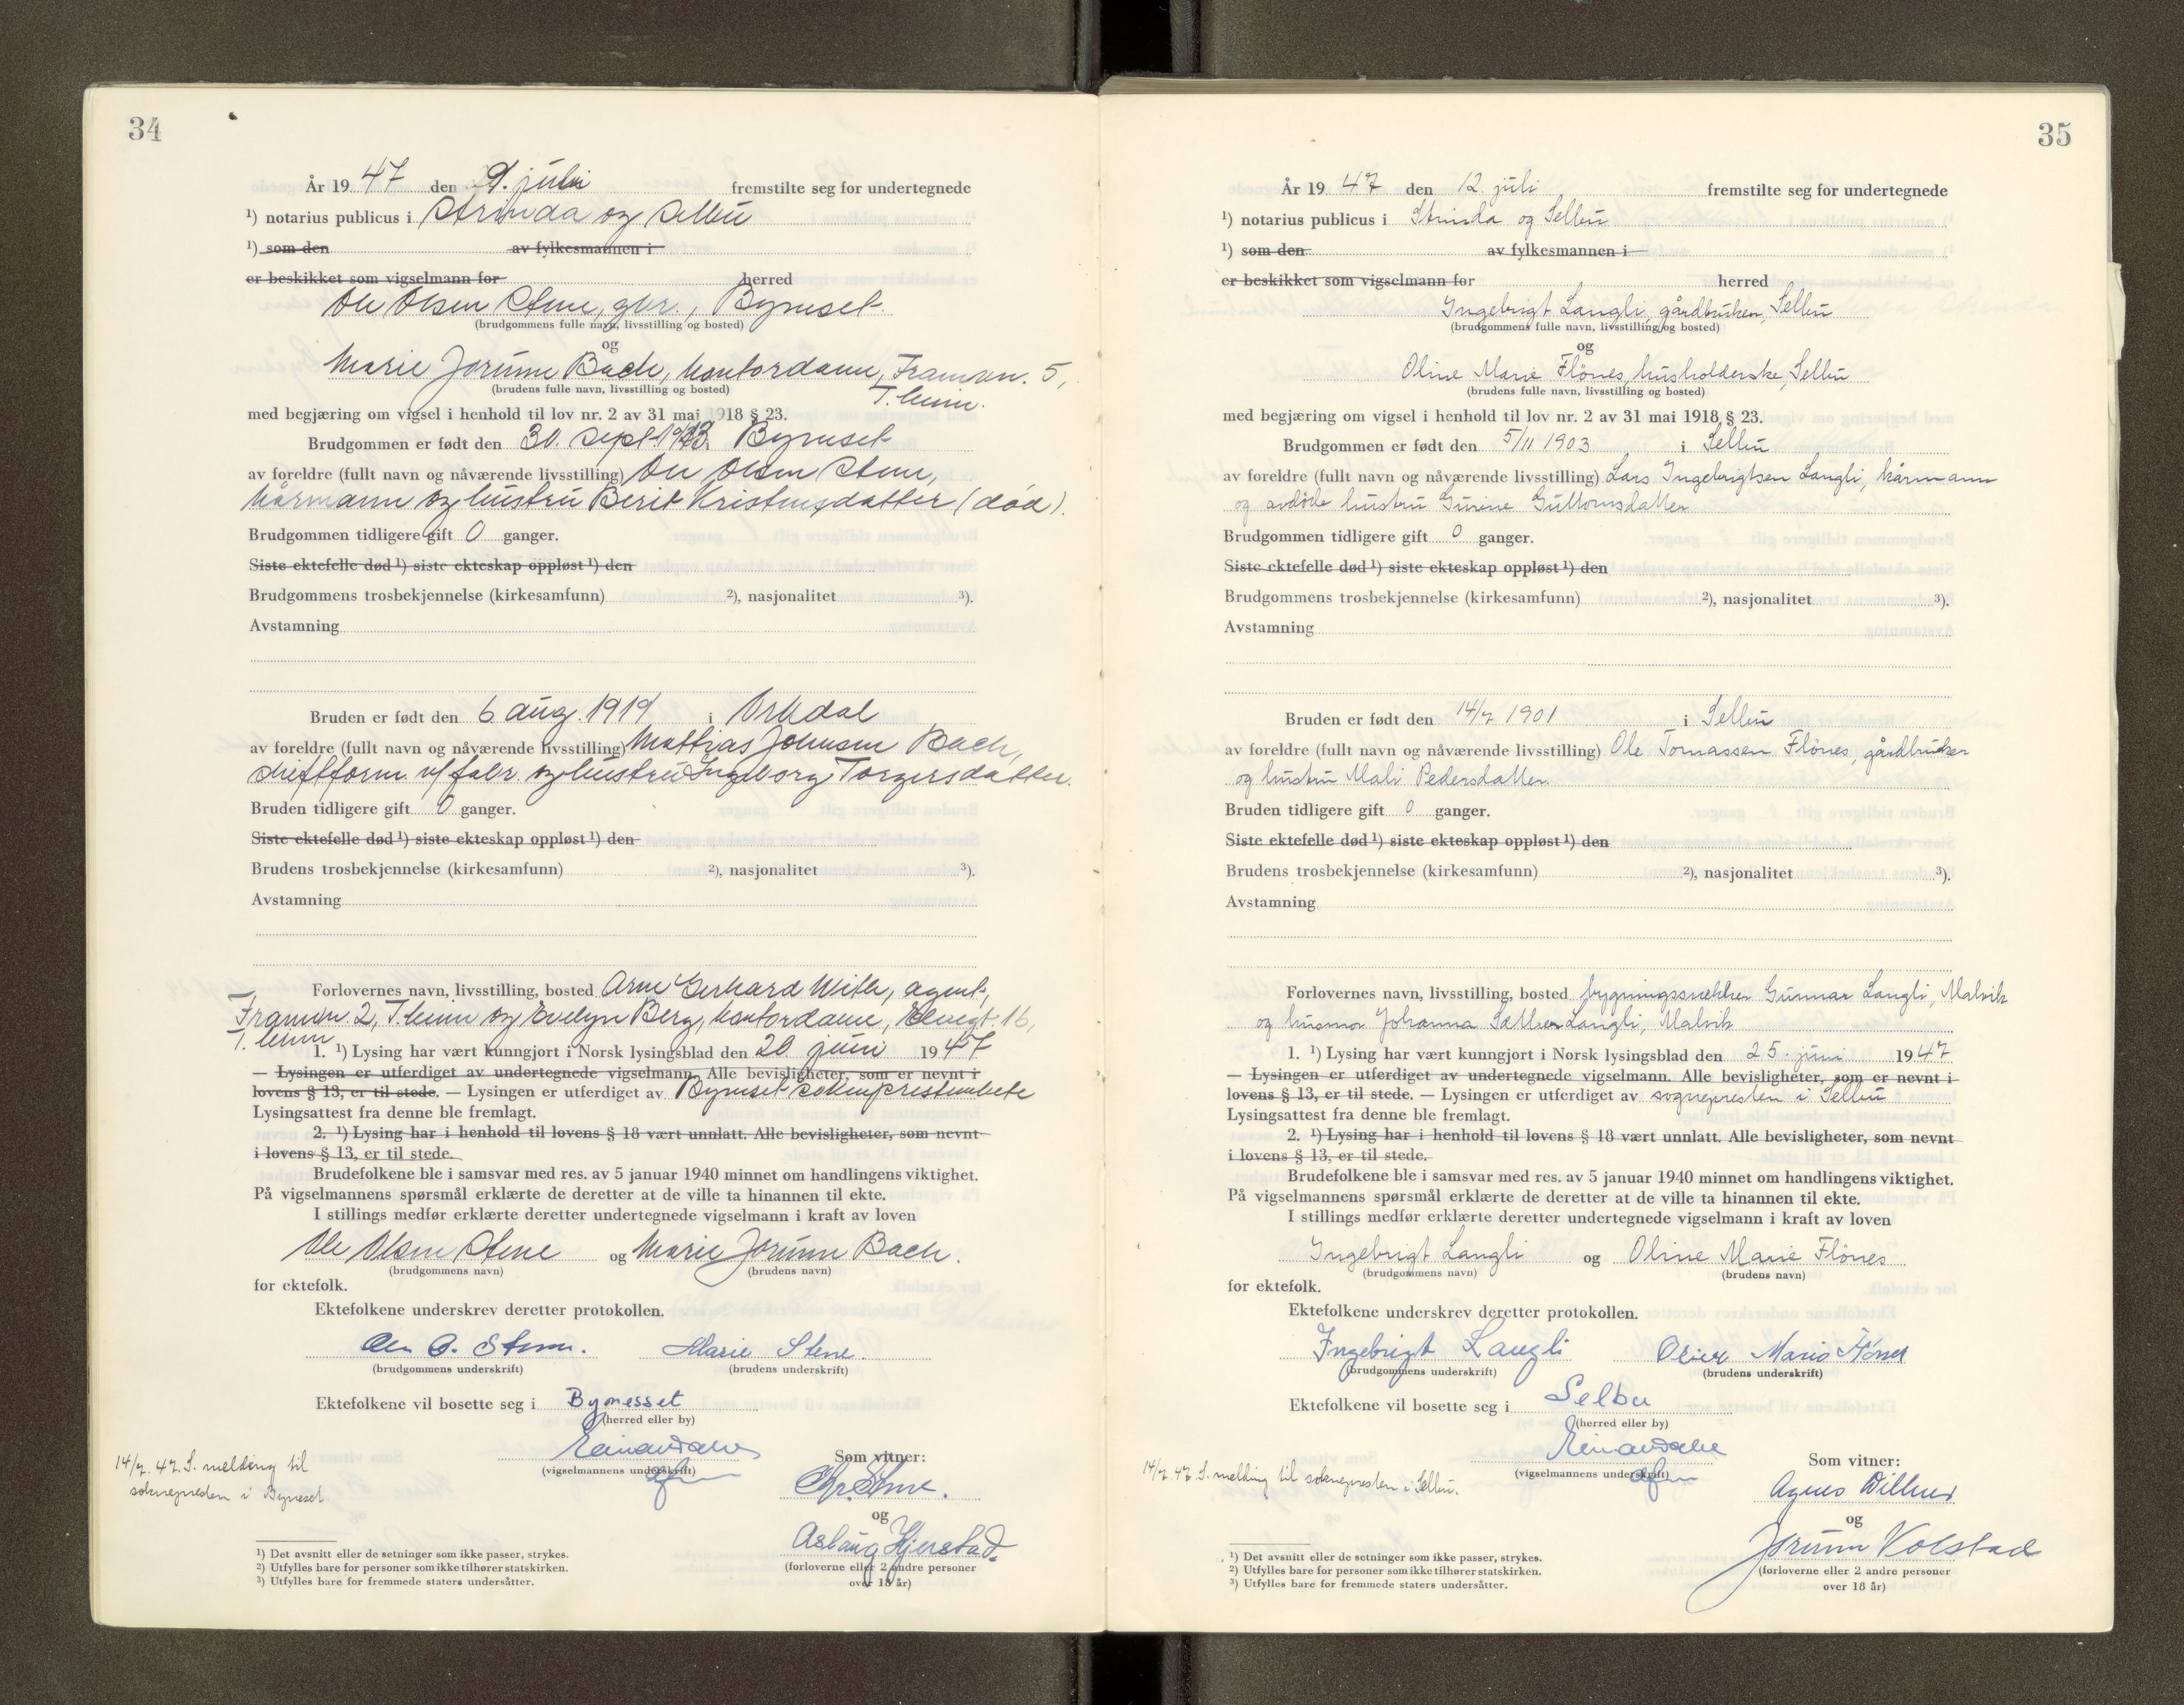 34
År 1947 den 9. juli fremstilte seg for undertegnede
¹) notarius publicus i Strinda og Selbu
¹) som den av fylkesmannen i
er beskikket som vigselmann for herred
Ole Olsen Stene, gbr., Byneset
(brudgommens fulle navn, livsstilling og bosted)
og
Marie Jorunn Bach, kontordame, Framvn. 5,
T.heim.
(brudens fulle navn, livsstilling og bosted)
med begjæring om vigsel i henhold til lov nr. 2 av 31 mai 1918 § 23.
Brudgommen er født den 30. sept. 1913 Byneset
av foreldre (fullt navn og nåværende livsstilling) Ole Olsen Stene,
kårmann og hustru Berit Kristensdatter (død).
Brudgommen tidligere gift 0 ganger.
Siste ektefelle død ¹) siste ekteskap oppløst ¹) den
Brudgommens trosbekjennelse (kirkesamfunn) ²), nasjonalitet ³).
Avstamning
Bruden er født den 6 aug. 1919 i Orkdal
av foreldre (fullt navn og nåværende livsstilling) Mattias Johnsen Bach,
skiftform. v/ fabr. og hustru Ingeborg Torgersdatter.
Bruden tidligere gift 0 ganger.
Siste ektefelle død ¹) siste ekteskap oppløst ¹) den
Brudens trosbekjennelse (kirkesamfunn) ²), nasjonalitet ³).
Avstamning
Forlovernes navn, livsstilling, bosted Arne Gerhard With, agent,
Framvn. 2, T.heim og Evelyn Berg, kontordame, Elvegt. 16,
T.heim
1. ¹) Lysing har vært kunngjort i Norsk lysingsblad den 20 juni 1947
— Lysingen er utferdiget av undertegnede vigselmann. Alle bevisligheter, som er nevnt i
lovens § 13, er til stede. — Lysingen er utferdiget av Byneset sokneprestembete
Lysingsattest fra denne ble fremlagt.
2. ¹) Lysing har i henhold til lovens § 18 vært unnlatt. Alle bevisligheter, som nevnt
i lovens § 13, er til stede.
Brudefolkene ble i samsvar med res. av 5 januar 1940 minnet om handlingens viktighet.
På vigselmannens spørsmål erklærte de deretter at de ville ta hinannen til ekte.
I stillings medfør erklærte deretter undertegnede vigselmann i kraft av loven
Ole Olsen Stene og Marie Jorunn Bach.
(brudgommens navn) (brudens navn)
for ektefolk.
Ektefolkene underskrev deretter protokollen.
Ole O. Stene. Marie Stene.
(brudgommens underskrift) (brudens underskrift)
Ektefolkene vil bosette seg i Bynesset
(herred eller by)
Som vitner:
(vigselmannens underskrift)
14/7. 47. S. melding til
soknepresten i Byneset
Kr. Stene.
og
Aslaug Hjerstad.
(forloverne eller 2 andre personer
over 18 år)
¹) Det avsnitt eller de setninger som ikke passer, strykes.
²) Utfylles bare for personer som ikke tilhører statskirken.
³) Utfylles bare for fremmede staters undersåtter.
35
År 1947 den 12. juli fremstilte seg for undertegnede
¹) notarius publicus i Strinda og Selbu
¹) som den av fylkesmannen i
er beskikket som vigselmann for herred
Ingebrigt Langli, gårdbruker, Selbu
(brudgommens fulle navn, livsstilling og bosted)
og
Oline Marie Flönes, husholderske, Selbu
(brudens fulle navn, livsstilling og bosted)
med begjæring om vigsel i henhold til lov nr. 2 av 31 mai 1918 § 23.
Brudgommen er født den 5/11 1903 i Selbu
av foreldre (fullt navn og nåværende livsstilling) Lars Ingebrigtsen Langli, kårmann
og avdøde hustru Gurine Guttormsdatter
Brudgommen tidligere gift 0 ganger.
Siste ektefelle død ¹) siste ekteskap oppløst ¹) den
Brudgommens trosbekjennelse (kirkesamfunn) ²), nasjonalitet ³).
Avstamning
Bruden er født den 14/7 1901 i Selbu
av foreldre (fullt navn og nåværende livsstilling) Ole Tomassen Flönes, gårdbruker
og hustru Mali Pedersdatter
Bruden tidligere gift 0 ganger.
Siste ektefelle død ¹) siste ekteskap oppløst ¹) den
Brudens trosbekjennelse (kirkesamfunn) ²), nasjonalitet ³).
Avstamning
Forlovernes navn, livsstilling, bosted bygningssnekker Gunnar Langli, Malvik
og husmor Johanna Sæther Langli, Malvik
1. ¹) Lysing har vært kunngjort i Norsk lysingsblad den 25. juni 1947
— Lysingen er utferdiget av undertegnede vigselmann. Alle bevisligheter, som er nevnt i
lovens § 13, er til stede. — Lysingen er utferdiget av sognepresten i Selbu
Lysingsattest fra denne ble fremlagt.
2. ¹) Lysing har i henhold til lovens § 18 vært unnlatt. Alle bevisligheter, som nevnt
i lovens § 13, er til stede.
Brudefolkene ble i samsvar med res. av 5 januar 1940 minnet om handlingens viktighet.
På vigselmannens spørsmål erklærte de deretter at de ville ta hinannen til ekte.
I stillings medfør erklærte deretter undertegnede vigselmann i kraft av loven
Ingebrigt Langli og Oline Marie Flönes
(brudgommens navn) (brudens navn)
for ektefolk.
Ektefolkene underskrev deretter protokollen.
Ingebrigt Langli Marie
(brudgommens underskrift) (brudens underskrift)
Ektefolkene vil bosette seg i Selbu
(herred eller by)
Som vitner:
(vigselmannens underskrift)
14/7. 47. S. melding til soknepresten i Selbu.
Agnes
og
Jorunn Volstad
(forloverne eller 2 andre personer
over 18 år)
¹) Det avsnitt eller de setninger som ikke passer, strykes.
²) Utfylles bare for personer som ikke tilhører statskirken.
³) Utfylles bare for fremmede staters undersåtter.